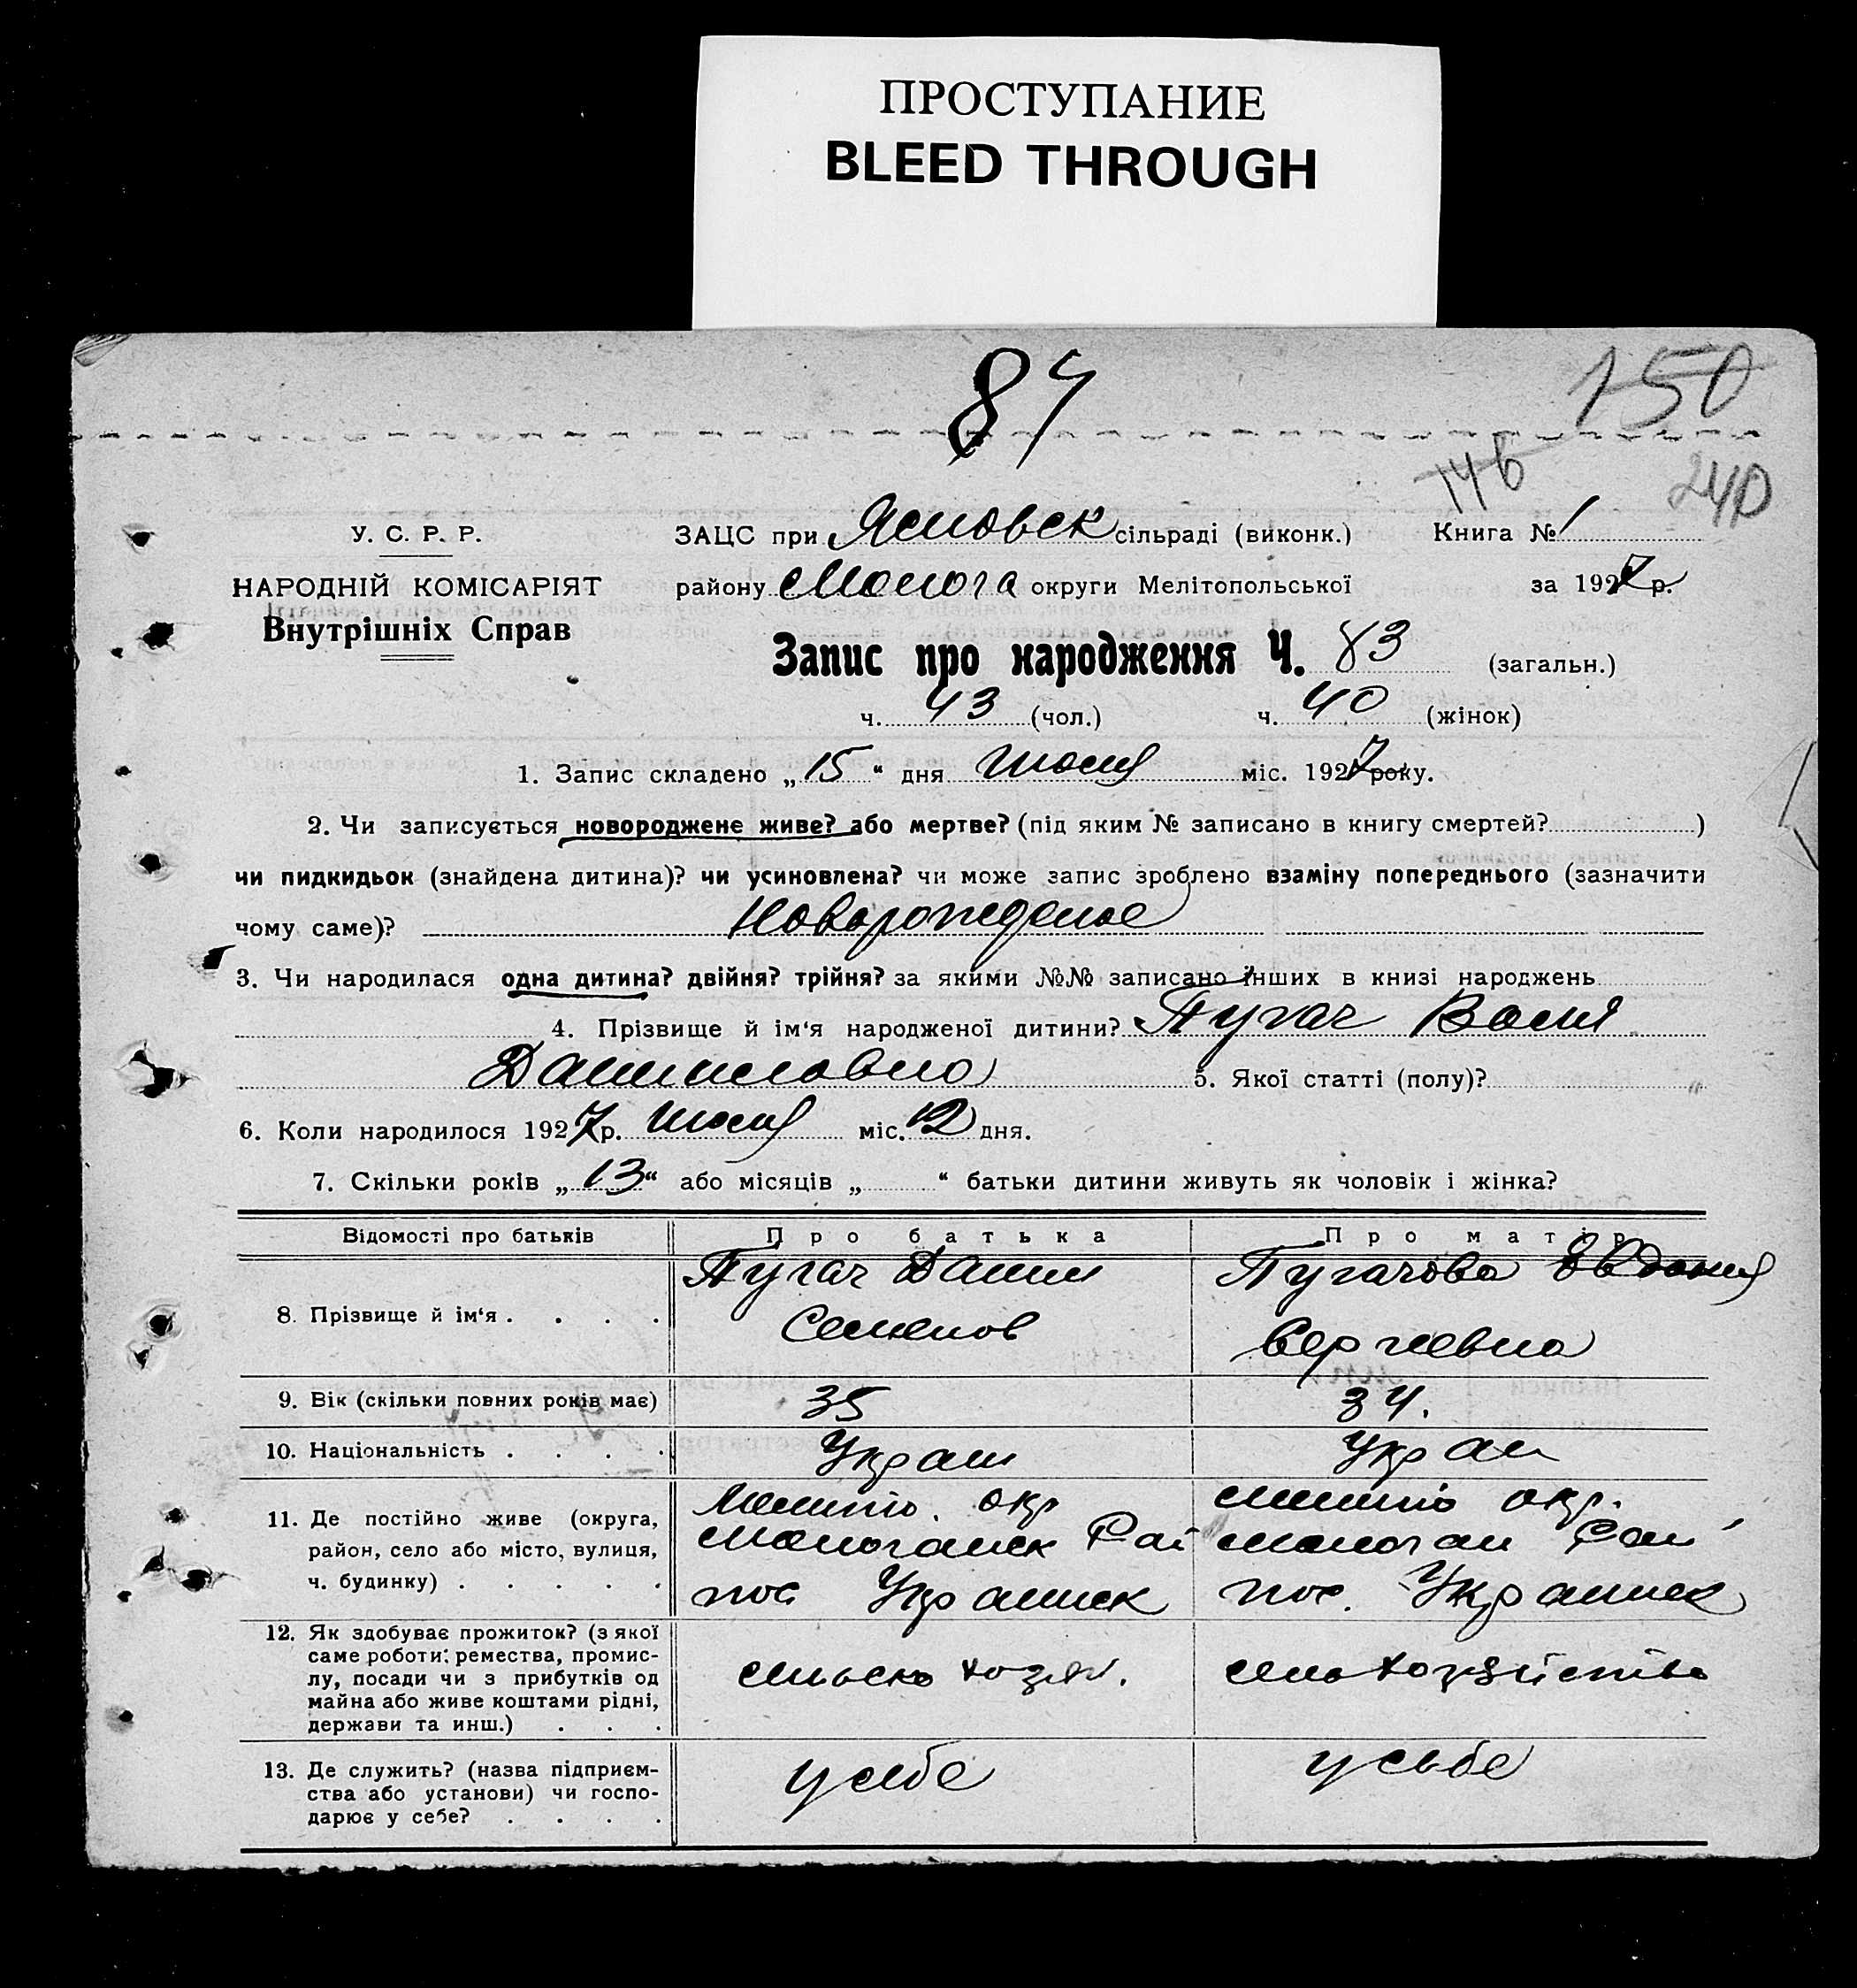 ПРОСТУПАНИЕ
BLEED THROUGH
84
150
146
240
У. С. Р. Р.
ЗАЦС при сільраді (виконк.) Книга № 1
НАРОДНІЙ КОМІСАРІЯТ
району округи Мелітопольської за 1927 р.
Внутрішніх Справ
Запис про народження Ч. 83 (загальн.)
ч. 43 (чол.) ч. 40 (жінок)
1. Запис складено „ 15 “ дня міс. 1927 року.
2. Чи записується новороджене живе? або мертве? (під яким № записано в книгу смертей? )
чи пидкидьок (знайдена дитина)? чи усиновлена? чи може запис зроблено взаміну попереднього (зазначити
чому саме)? Новорожденое
3. Чи народилася одна дитина? двійня? трійня? за якими №№ записано інших в книзі народжень
4. Прізвище й ім‘я народженої дитини? Пугач
Даниловна 5. Якої статті (полу)?
6. Коли народилося 1927 р. міс. 12 дня.
7. Скільки років „ 13 “ або місяців „ “ батьки дитини живуть як чоловік і жінка?
Відомості про батьків Про батька Про матір
8. Прізвище й ім‘я . . . . Пугач Данил Пугачова Евдокия
Семенов Сергеевна
9. Вік (скільки повних років має) 35 34.
10. Національність . . . . Украин Украи
11. Де постійно живе (округа, Мелито. окр мелито окр.
район, село або місто, вулиця,
ч. будинку) . . . . . пос Украинск пос. Украинск
12. Як здобуває прожиток? (з якої
саме роботи: ремества, промис-
лу, посади чи з прибутків од сельско хозяй. сельхозяйство
майна або живе коштами рідні,
держави та инш.) . . .
13. Де служить? (назва підприєм- у себе у сьбе
ства або установи) чи госпо-
дарює у себе? . . . .